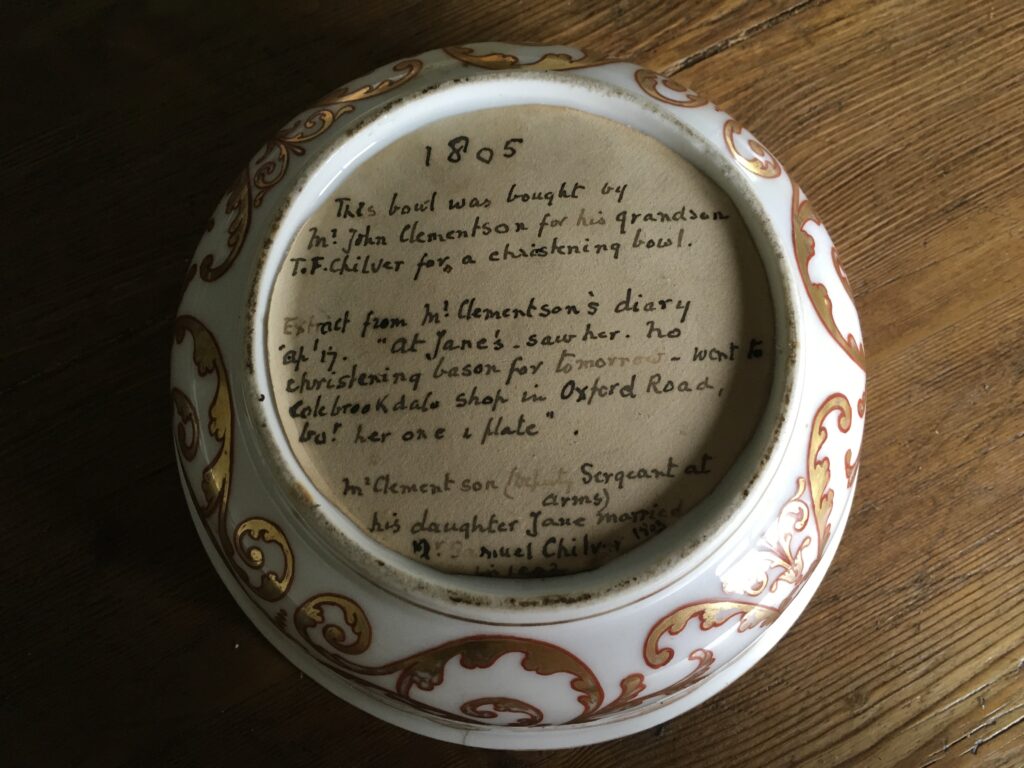 1805
This bowl was bought by
Mr John Clementson for his grandson
T.F. Chilver for a christening bowl.
Extract from Mr Clementson's diary
ap' 17. "At Jane's - saw her. no
christening bason for tomorrow - went to
Colebrookdale shop in Oxford Road,
bot her one & plate".
Mr Clementson (Deputy Sergeant at
arms)
his daughter Jane married
Mr Samuel Chilver